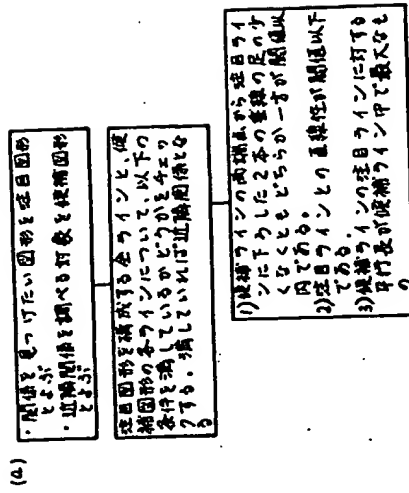 (a)
・関係を見つけたい図形を注目図形
とよぶ
・近隣関係を調べる対象を候補図形
とよぶ
注目図形を構成する全ラインと、候
補図形の各ラインについて、以下の
条件を満しているかどうかをチェッ
クする。満していれば近隣関係とな
る
1)候補ラインの両端点から注目ライ
ンに下ろした2本の垂線の足の少
なくともどちらか一方が閾値以
内である。
2)注目ラインとの直線性が閾値以下
である。
3)候補ラインの注目ラインに対する
平行長が候補ライン中で最大なも
の